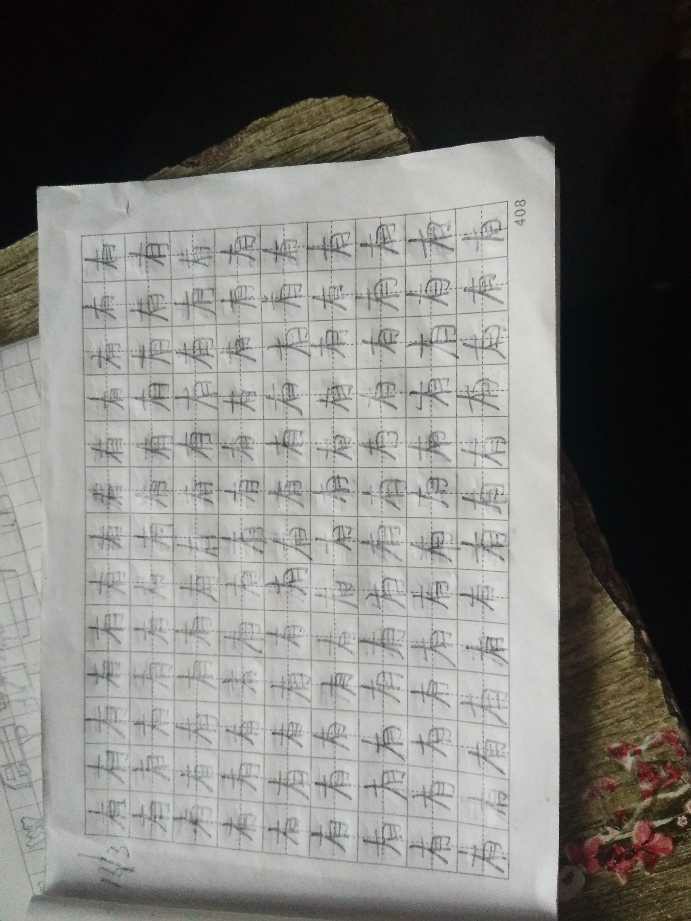 有有有有有有有有有有有有有
有有有有有有有有有有有有有
有有有有有有有有有有有有有
有有有有有有有有有有有有有
有有有有有有有有有有有有有
有有有有有有有有有有有有有
有有有有有有有有有有有有有
有有有有有有有有有有有有有
有有有有有有有有有有有有有
408